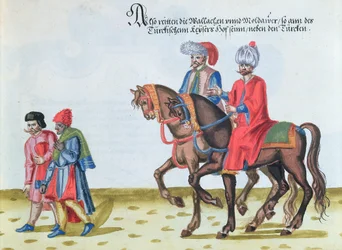 Also reitten die Wallachen vnnd Moldauer / so ann des
Türckischenn Keysers Hof seinn / neben den Türcken.